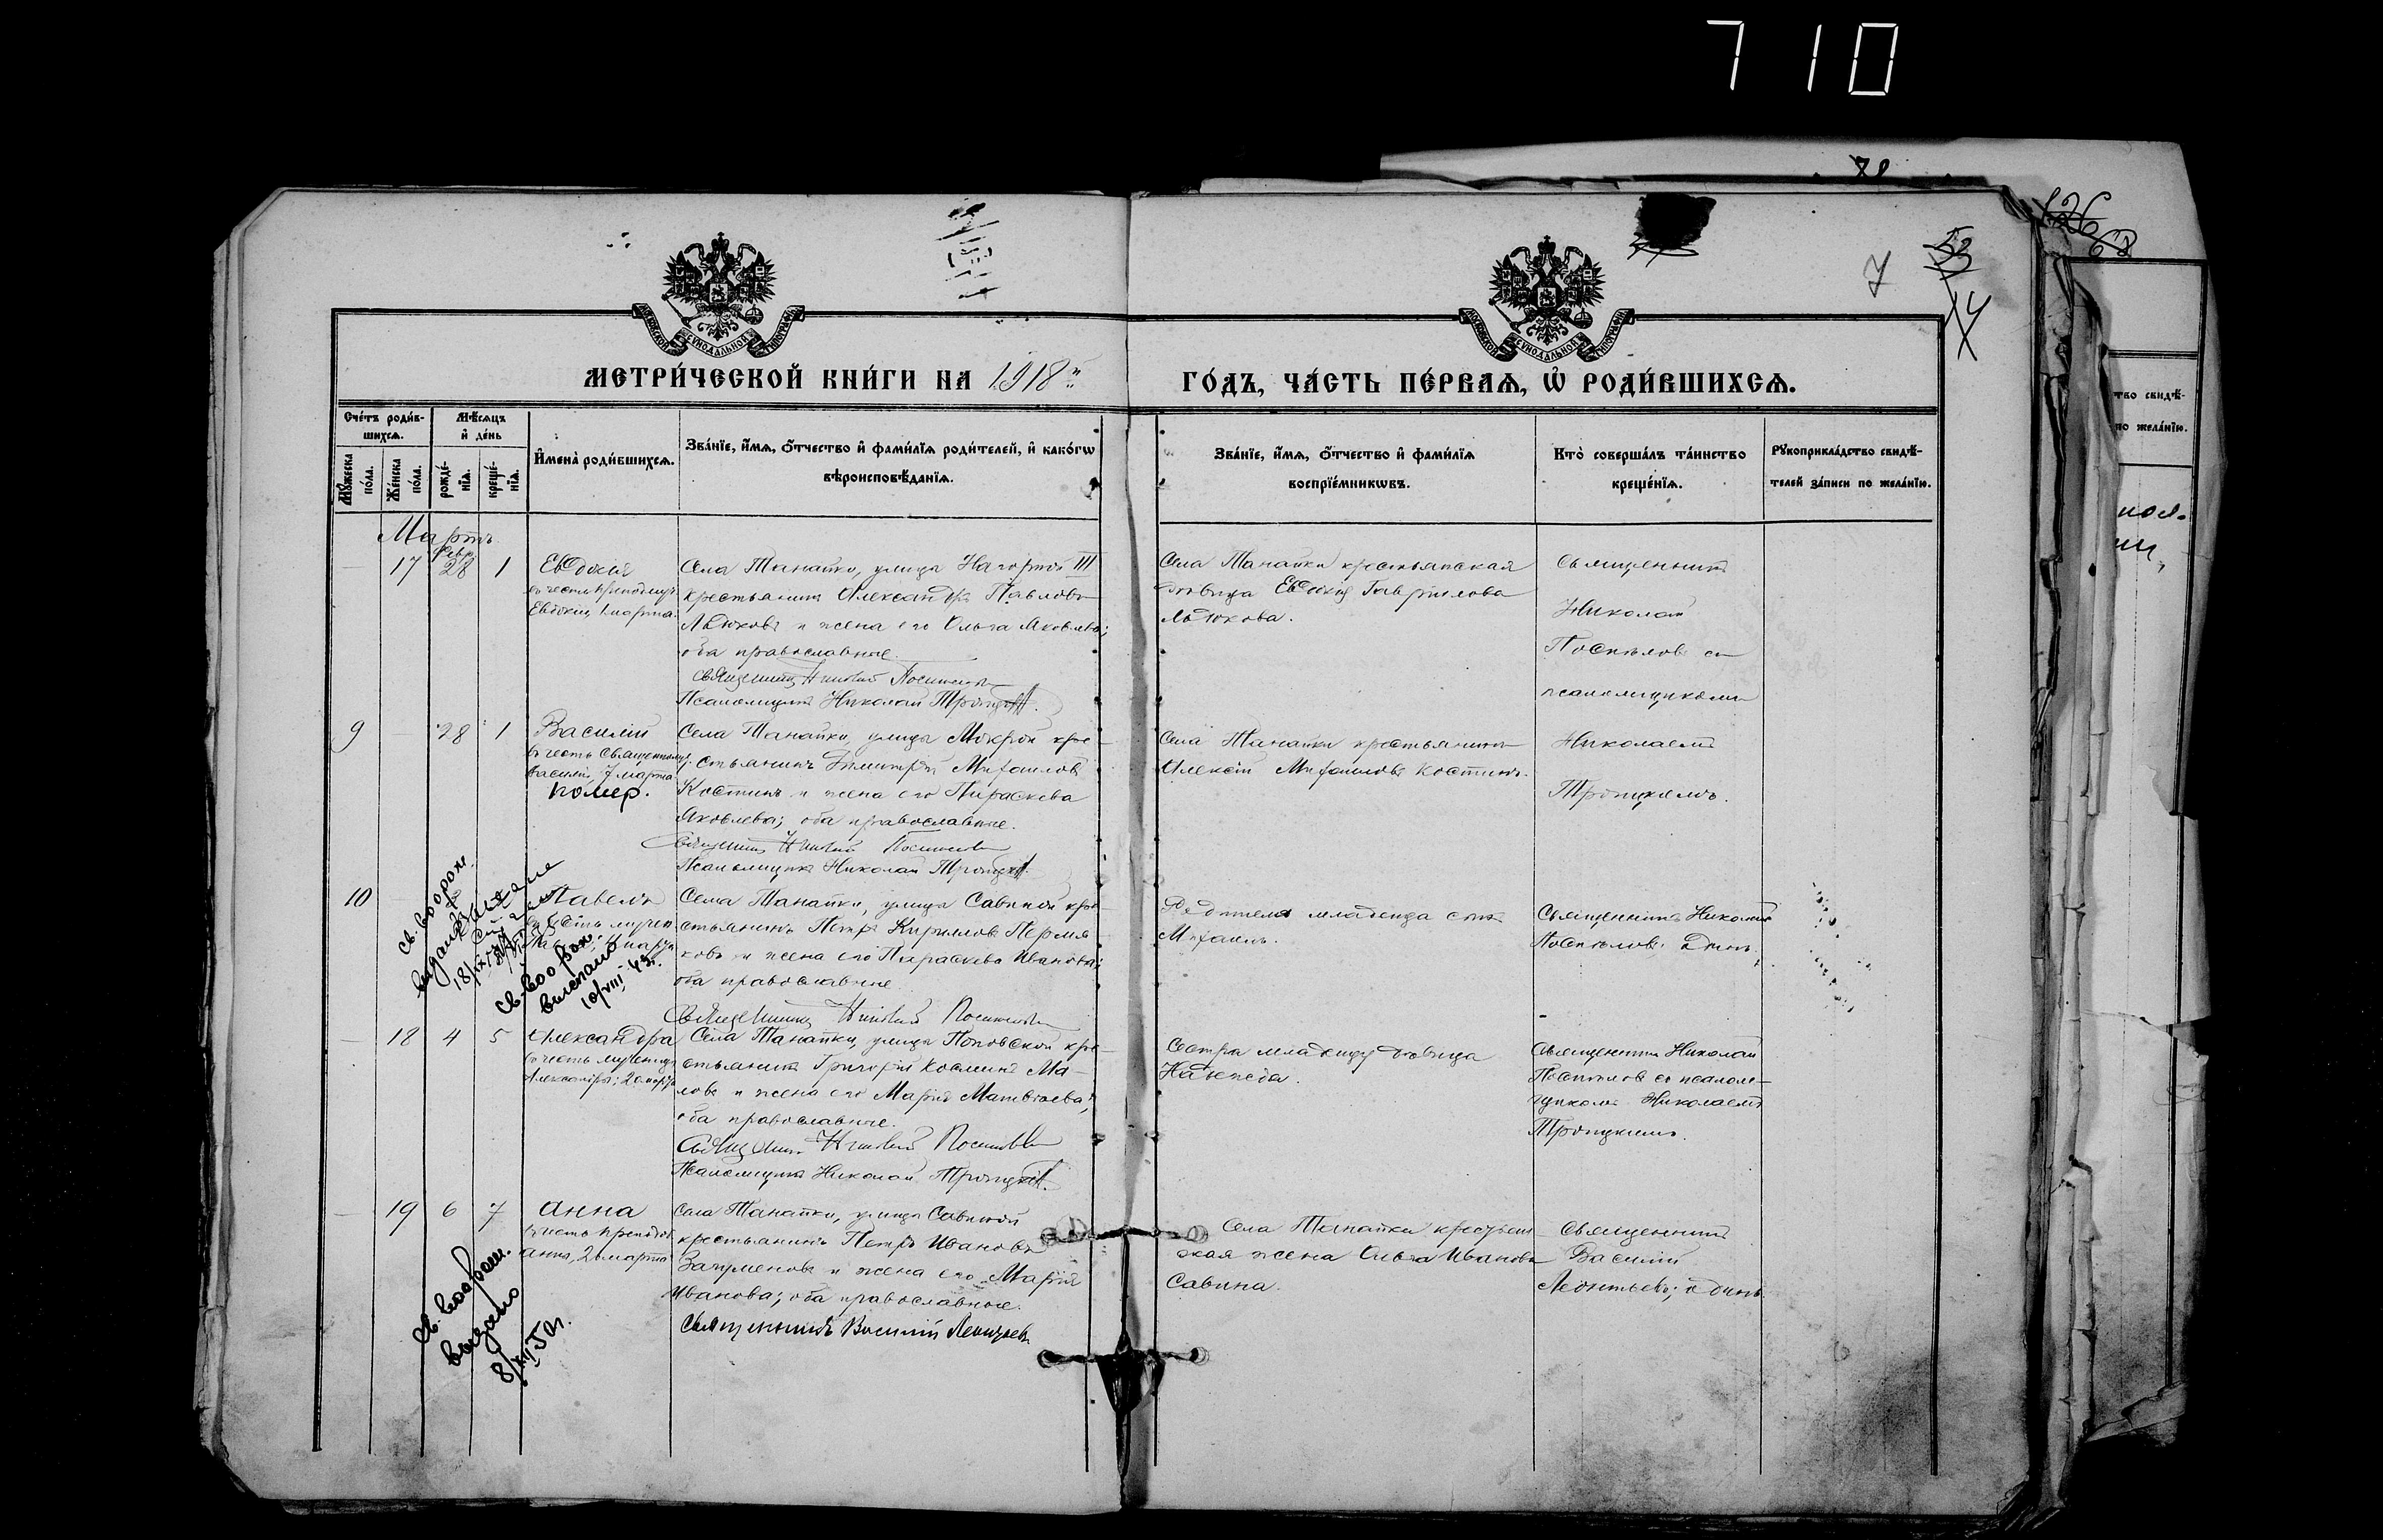 710
78
126
68
7
53
14
МЕТРИ́ЧЕСКОЙ КНИ́ГИ НА 1918й
ГО́ДЪ, ЧА́СТЬ ПЕ́РВАѦ, Ѽ РОДИ́ВШИХСѦ.
Сче́тъ роди́в-
шихсѧ.
Мѣ́сѧцъ
и҆ де́нь
Мꙋ́жеска
по́ла.
Же́нска
по́ла.
рожде́-
нїѧ.
креще́-
нїѧ.
И҆мена̀ роди́вшихсѧ.
Зва́нїе, и҆́мѧ, ѻ҆́тчество и҆ фами́лїѧ роди́телей, и҆ како́гѡ
вѣроисповѣ́данїѧ.
Зва́нїе, и҆́мѧ, ѻ҆́тчество и҆ фами́лїѧ
воспрїе́мникѡвъ.
Кто̀ соверша́лъ та́инство
креще́нїѧ.
Рꙋкоприкла́дство свидѣ́-
телей за́писи по жела́нїю.
тво свидѣ́-
по жела́нїю.
Мартъ
— 17 Февр. 28 1
Евдокія
въ честь преподмуч.
Евдокіи, 1 марта.
Села Танайки, улицы Нагорной III
крестьянинъ Александръ Павловъ
и жена его Ольга Яковлева;
оба православные.
Священникъ Николай Поспѣловъ
Псаломщикъ Николай Троицкій.
Села Танайки крестьянская
дѣвица Евдокія Гаврилова
Священникъ
Николай
Поспѣловъ съ
псаломщикомъ
9 — 28 1
Василій
въ честь Священномуч.
Василія, 7 марта.
помер.
Села Танайки, улицы Мокрой кре-
стьянинъ Димитрій Михаиловъ
Костинъ и жена его Параскева
Яковлева; оба православные.
Священникъ Николай Поспѣловъ
Псаломщикъ Николай Троицкій.
Села Танайки крестьянинъ
Алексій Михаиловъ Костинъ.
Николаемъ
Троицкимъ.
10
Павелъ
Села Танайки, улицы Савиной кре-
стьянинъ Петръ Кирилловъ Пермя-
ковъ и жена его Параскева Иванова;
оба православные.
Священникъ Николай Поспѣловъ
Родителя младенца сынъ
Михаилъ.
Священникъ Николай
Поспѣловъ; одинъ.
св. во о рож.
выдано
св-во о рож.
выслано
10/VIII 43г.
— 18 4 5
Александра
въ честь мученицы
Александры; 20 марта
Села Танайки, улицы Поповской кре-
стьянинъ Григорій Косминъ Ма-
ловъ и жена его Марія Матвѣева;
оба православные.
Священникъ Николай Поспѣловъ
Псаломщикъ Николай Троицкій.
Сестра младенцу дѣвица
Надежда.
Священникъ Николай
Поспѣловъ съ псалом-
щикомъ Николаемъ
Троицкимъ.
— 19 6 7
Анна
въ честь преподоб.
Анны, 26 марта
Села Танайки, улицы Савиной
крестьянинъ Петръ Ивановъ
Загуменовъ и жена его Марія
Иванова; оба православные.
Священникъ Василій Леонтьевъ
Села Танайки крестьян-
ская жена Ольга Иванова
Савина.
Священникъ
Василій
Леонтьевъ; одинъ.
св. во о рож.
выдано